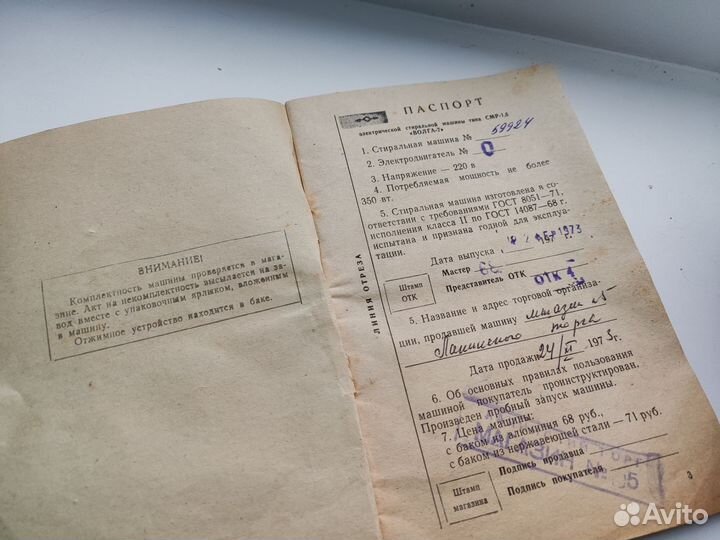 ВНИМАНИЕ!
Комплектность машины проверяется в мага-
зине. Акт на некомплектность высылается на за-
вод вместе с упаковочным ярлыком, вложенным
в машину.
Отжимное устройство находится в баке.
ЛИНИЯ ОТРЕЗА
ПАСПОРТ
электрической стиральной машины типа СМР-1,5
«ВОЛГА-7»
1. Стиральная машина № 59924
2. Электродвигатель № 0
3. Напряжение — 220 в
4. Потребляемая мощность не более
350 вт.
5. Стиральная машина изготовлена в со-
ответствии с требованиями ГОСТ 8051—71,
исполнения класса II по ГОСТ 14087—68 г.
испытана и признана годной для эксплуа-
тации.
Дата выпуска 197 г. 1973
Мастер
Штамп
ОТК
Представитель ОТК ОТК 4
5. Название и адрес торговой организа-
ции, продавшей машину магазин 5
торга
Дата продажи 24/II 1973г.
6. Об основных правилах пользования
машиной покупатель проинструктирован.
Произведен пробный запуск машины.
7. Цена машины:
с баком из алюминия 68 руб.,
с баком из нержавеющей стали — 71 руб.
МАГАЗИН №
Подпись продавца
Штамп
магазина
Подпись покупателя
3
Avito